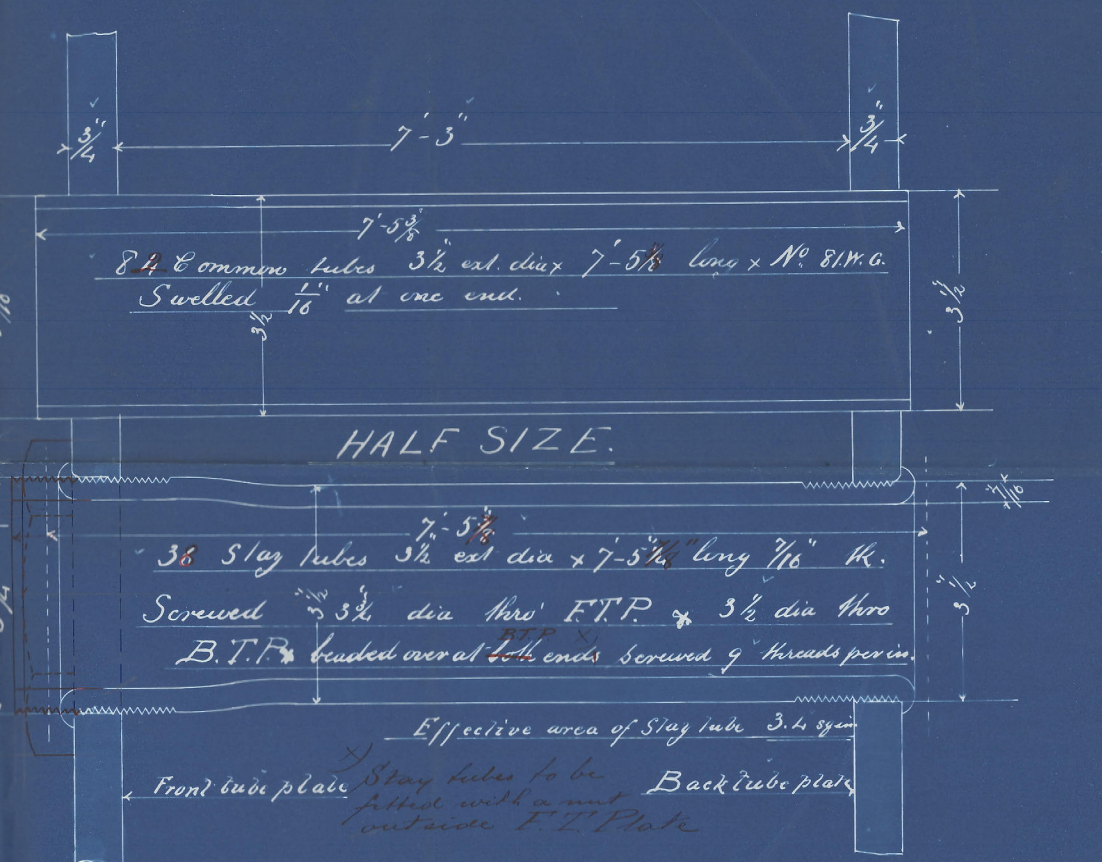 3/4" 7'-3" 3/4"
7'-5 3/8
8 Common tubes 3½" ext. dia x 7'-5 long x No. 8 I.W.G.
Swelled 1/16" at one end.
3½ 3½"
HALF SIZE.
7/16"
7'-5
38 Stay tubes 3½" ext dia x 7'-5" long 7/16" tk.
3½" 3½"
Screwed dia thro' F.T.P. & 3½" dia thro
B.T.P.
B.T.P. & beaded over at both ends screwed 9 threads per in.
Effective area of Stay tube 3.4 sq in
Front tube plate Back tube plate
x) Stay tubes to be
fitted with a nut
outside F.T. Plate